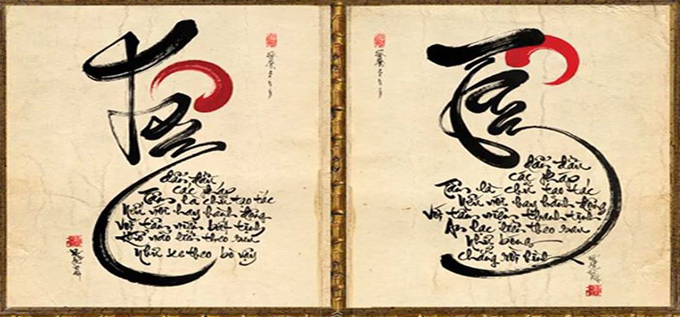 Tâm
dẫn đầu
các pháp
Tâm là chủ tạo tác
Nếu nói hay hành động
Với tâm niệm bất tịnh
Khổ não liền theo sau
Như xe theo bò vậy
Tâm
dẫn đầu
các pháp
Tâm là chủ tạo tác
Nếu nói hay hành động
Với tâm niệm thanh tịnh
An lạc liền theo sau
Như bóng
chẳng rời hình